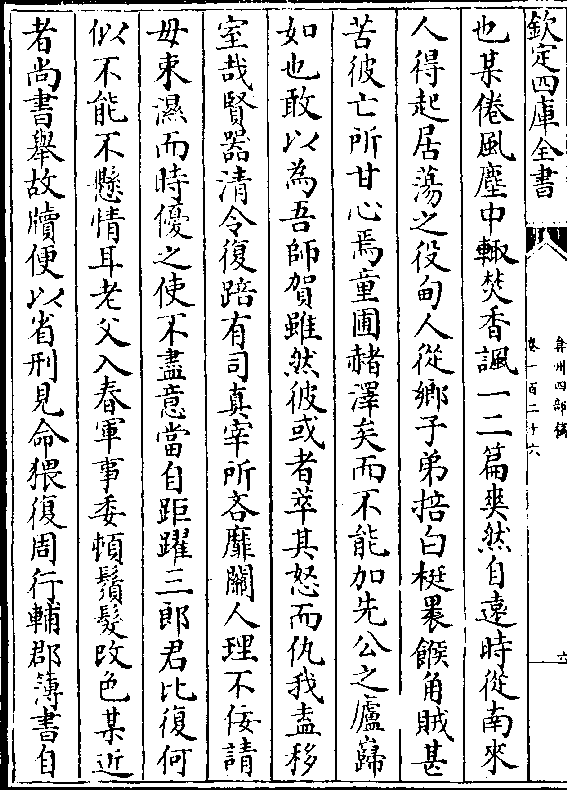 欽定四庫全書
弇州四部稿
卷一百二十六
也某倦風塵中輙焚香諷一二篇爽然自遠時從南來
人得起居蕩之役甸人從鄉子弟掊白梃裹餱角賊甚
苦彼亡所甘心焉童圃赭澤矣而不能加先公之廬巋
如也敢以為吾師賀雖然彼或者萃其怒而仇我盍移
室哉賢器清令復踣有司真宰所吝靡關人理不佞請
毋束濕而時優之使不盡意當自距躍三郎君比復何
似不能不懸情耳老父入春軍事委頓鬚髮改色某近
者尚書舉故牘便以省刑見命猥復周行輔郡簿書自